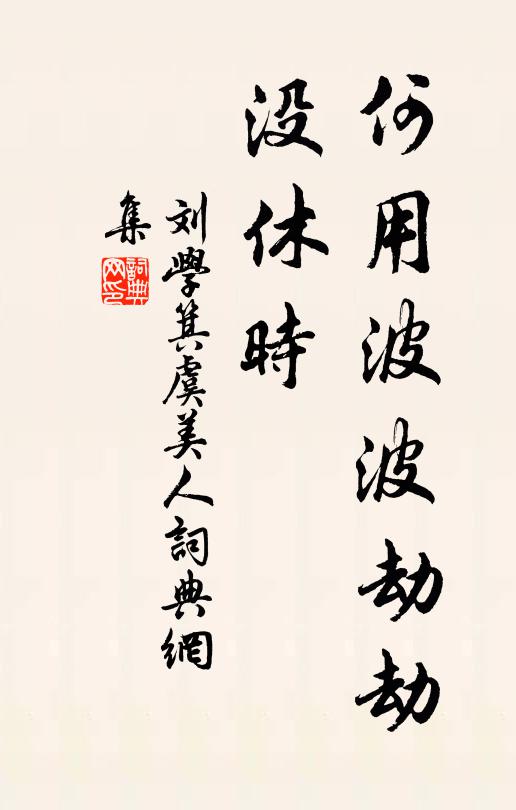 何用波波劫劫
没休時
刘學箕虞美人詞典網
集
詞典
网印